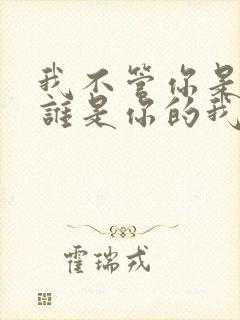 我不管你是
誰是你的我
霍瑞戎